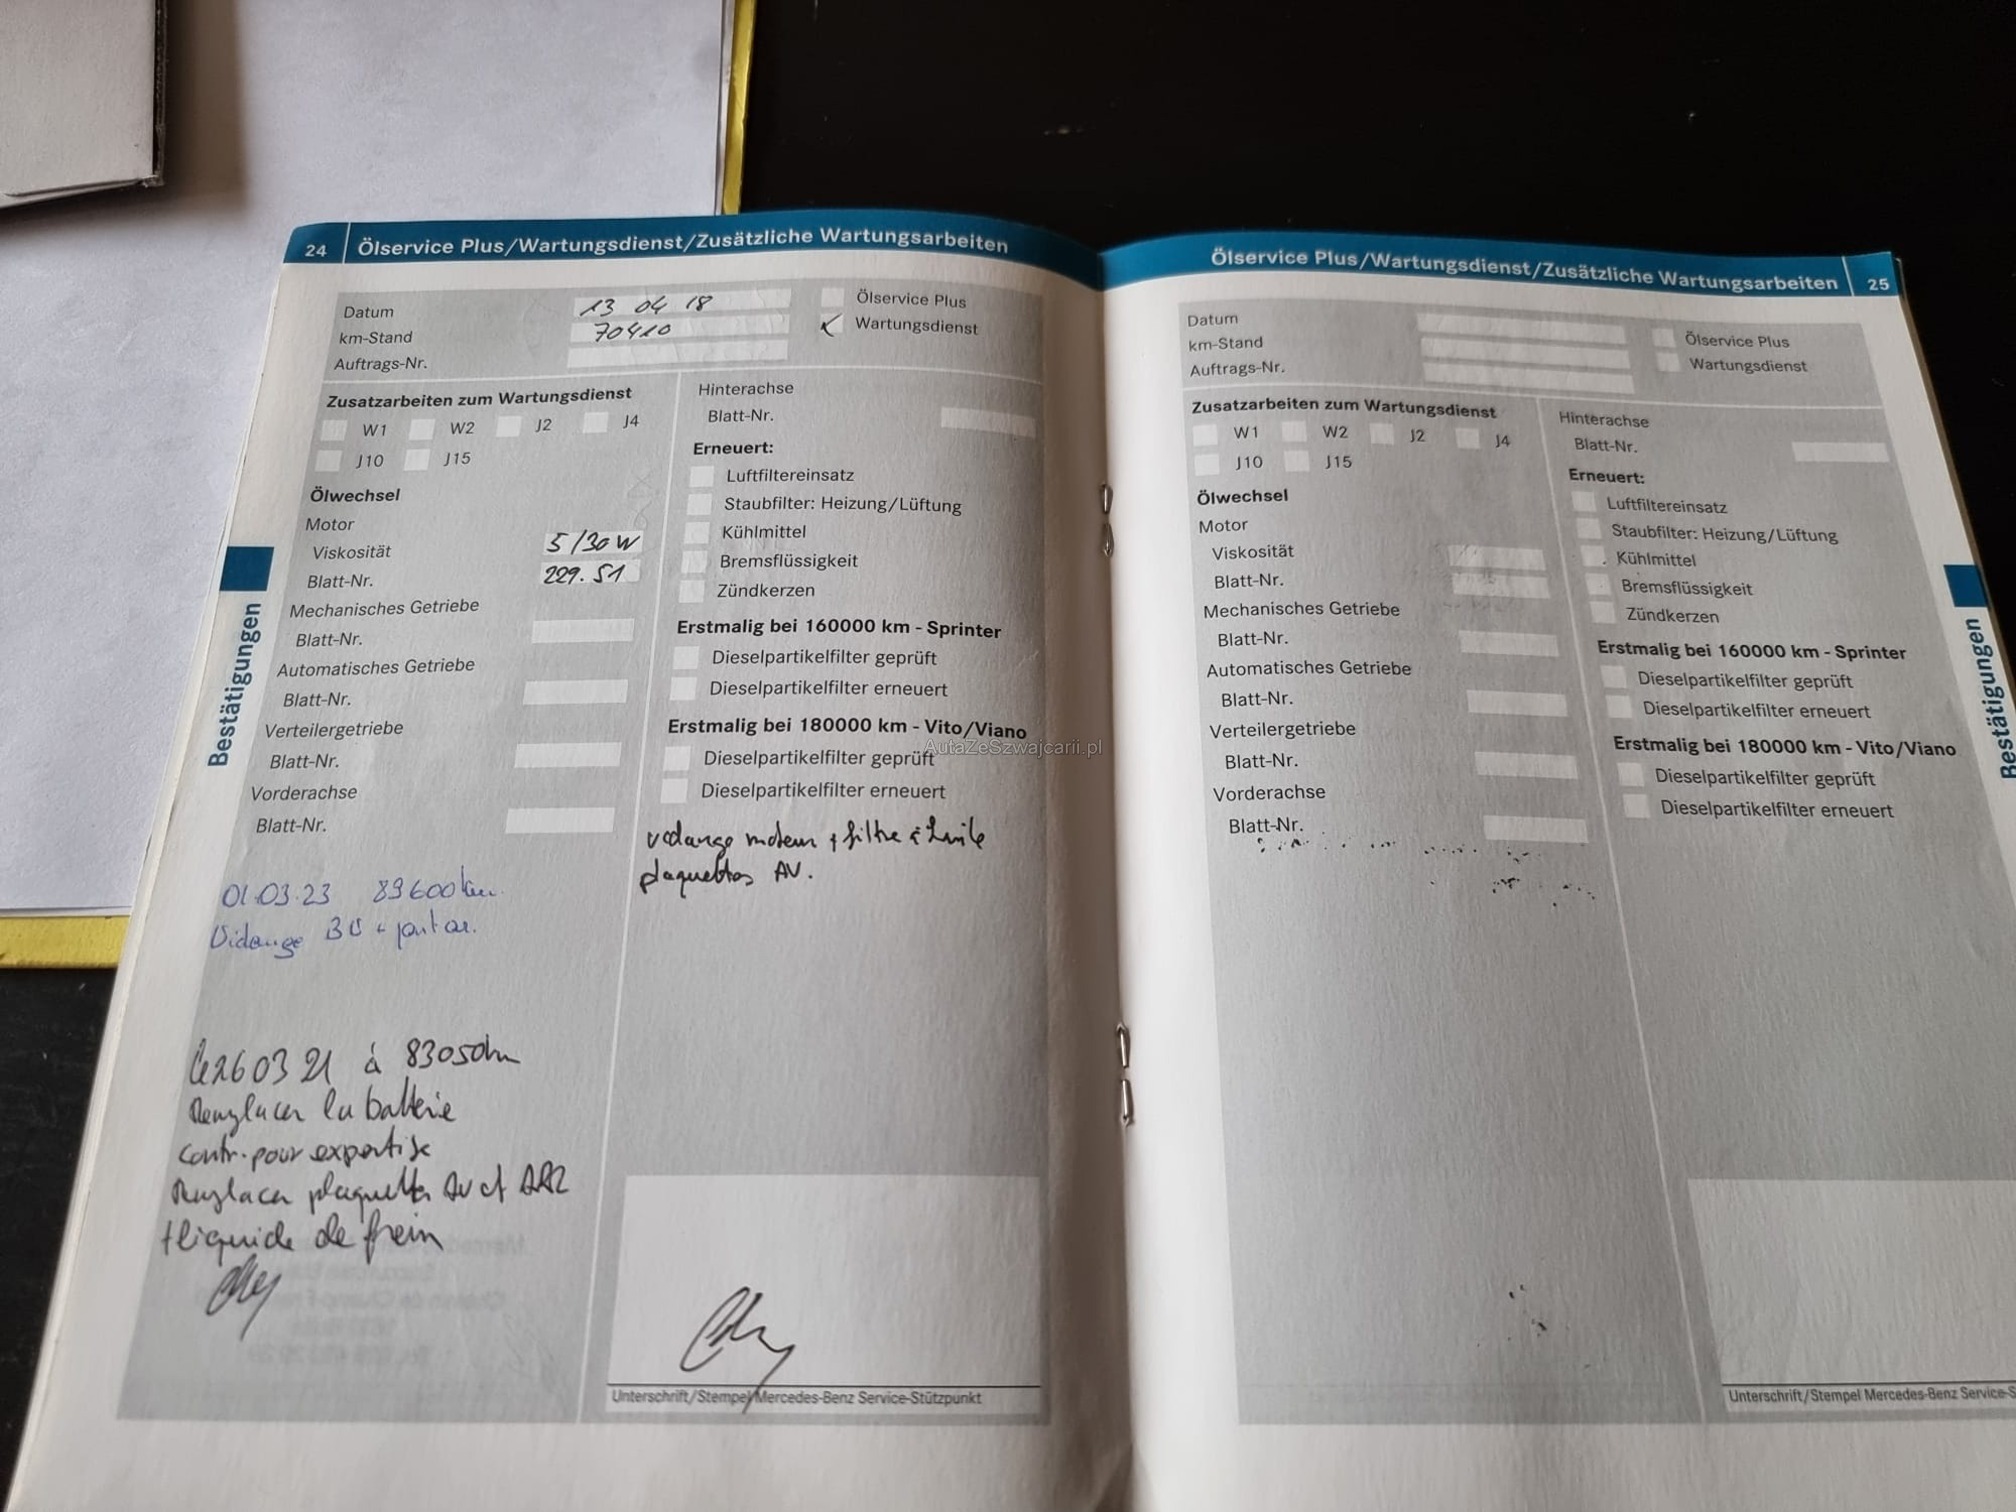 24 Ölservice Plus/Wartungsdienst/Zusätzliche Wartungsarbeiten
Datum 13 04 18
km-Stand 70410
Auftrags-Nr.
Ölservice Plus
Wartungsdienst
Zusatzarbeiten zum Wartungsdienst
W1 W2 J2 J4
J10 J15
Ölwechsel
Motor
Viskosität 5/30W
Blatt-Nr. 229.51
Mechanisches Getriebe
Blatt-Nr.
Automatisches Getriebe
Blatt-Nr.
Verteilergetriebe
Blatt-Nr.
Vorderachse
Blatt-Nr.
01.03.23 89600 km.
Vidange
Le 26 03 21 à 83050km
Remplacer la batterie
contr. pour expertise
Remplacer plaquettes AV et ARR
+liquide de frein
Bestätigungen
Hinterachse
Blatt-Nr.
Erneuert:
Luftfiltereinsatz
Staubfilter: Heizung/Lüftung
Kühlmittel
Bremsflüssigkeit
Zündkerzen
Erstmalig bei 160000 km - Sprinter
Dieselpartikelfilter geprüft
Dieselpartikelfilter erneuert
Erstmalig bei 180000 km - Vito/Viano
Dieselpartikelfilter geprüft
Dieselpartikelfilter erneuert
AutaZeSzwajcarii.pl
vidange moteur + filtre à huile
plaquettes AV.
Unterschrift/Stempel Mercedes-Benz Service-Stützpunkt
Ölservice Plus/Wartungsdienst/Zusätzliche Wartungsarbeiten 25
Datum
km-Stand
Auftrags-Nr.
Ölservice Plus
Wartungsdienst
Zusatzarbeiten zum Wartungsdienst
W1 W2 J2 J4
J10 J15
Ölwechsel
Motor
Viskosität
Blatt-Nr.
Mechanisches Getriebe
Blatt-Nr.
Automatisches Getriebe
Blatt-Nr.
Verteilergetriebe
Blatt-Nr.
Vorderachse
Blatt-Nr.
Hinterachse
Blatt-Nr.
Erneuert:
Luftfiltereinsatz
Staubfilter: Heizung/Lüftung
Kühlmittel
Bremsflüssigkeit
Zündkerzen
Erstmalig bei 160000 km - Sprinter
Dieselpartikelfilter geprüft
Dieselpartikelfilter erneuert
Erstmalig bei 180000 km - Vito/Viano
Dieselpartikelfilter geprüft
Dieselpartikelfilter erneuert
Unterschrift/Stempel Mercedes-Benz Service-S
Bestätigungen